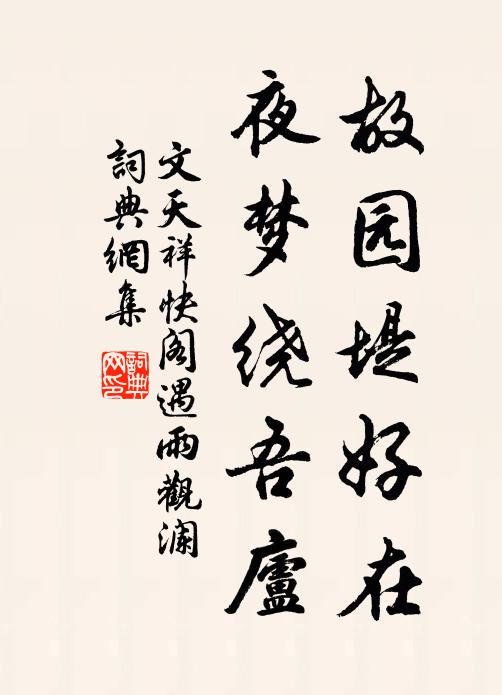 故园堤好在
夜梦绕吾廬
文天祥快阁遇雨觀澜
詞典網集
詞典
网印